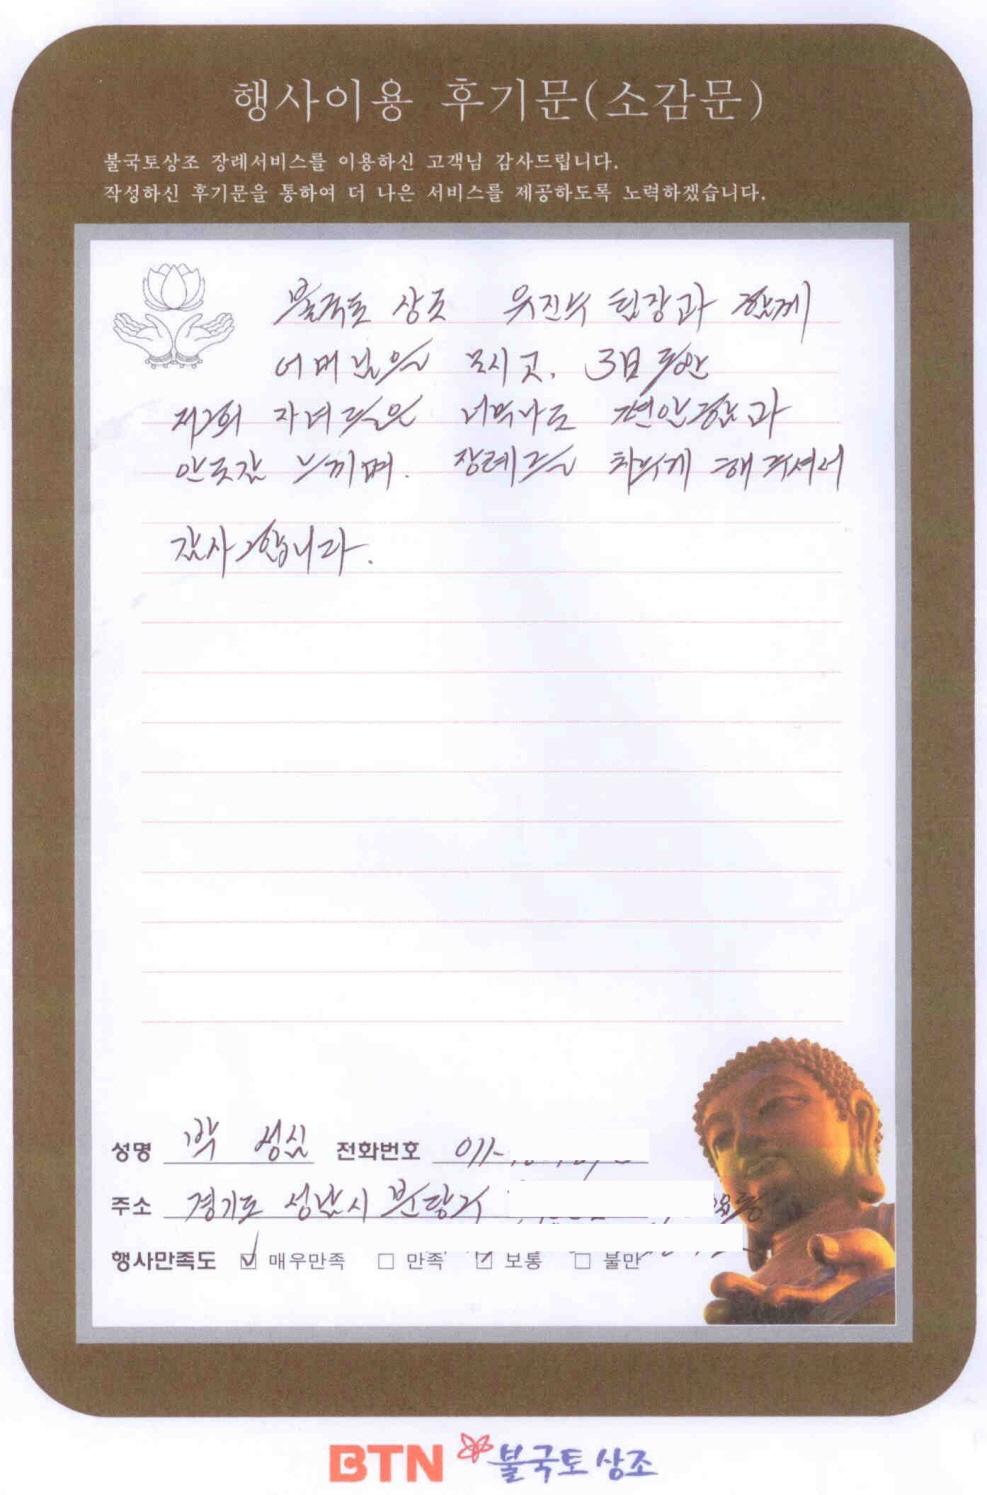 행사이용 후기문(소감문)
불국토상조 장례서비스를 이용하신 고객님 감사드립니다.
작성하신 후기문을 통하여 더 나은 서비스를 제공하도록 노력하겠습니다.
불국토 상조 유진수 팀장과 함께
어머님을 모시고. 3日동안
저희 자녀들은 너무나도 편안함과
안도감 느끼며. 장례를 치루게 해주셔서
감사합니다.
성명 박 성심 전화번호 011-
주소 경기도 성남시 분당구
행사만족도 매우만족 만족 보통 불만
BTN 불국토상조